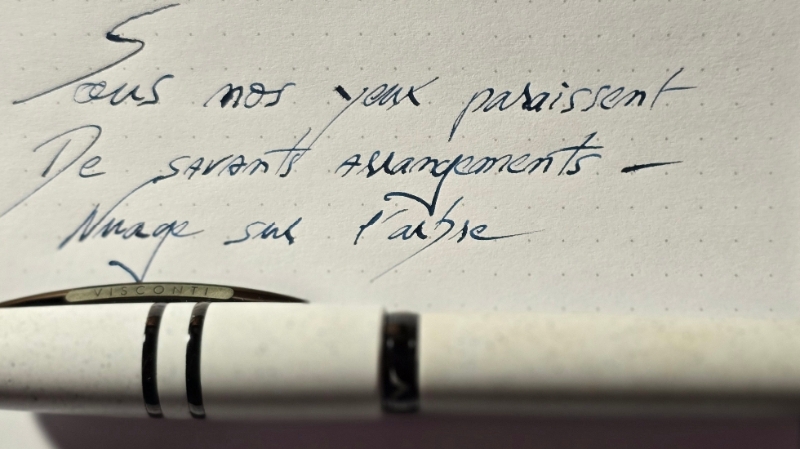 Sous nos yeux paraissent
De savants arrangements –
Nuage sur l'arbre
VISCONTI